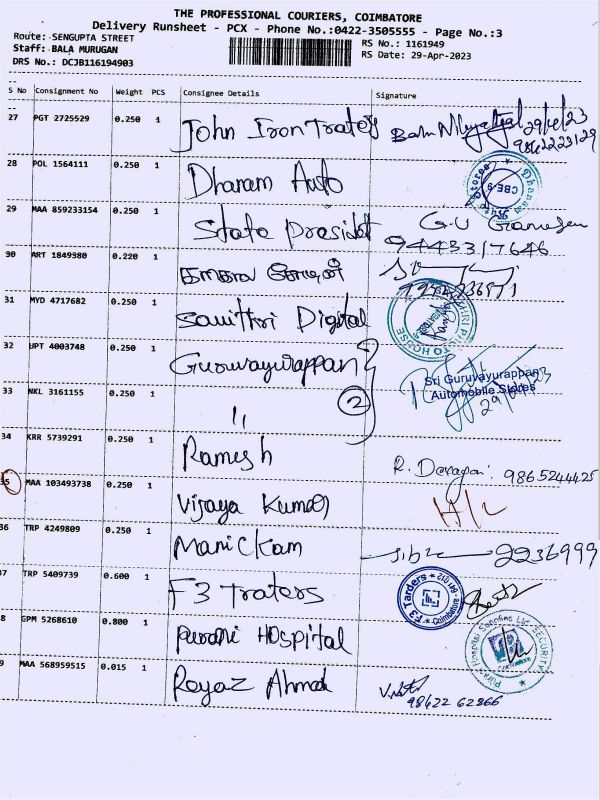 THE PROFESSIONAL COURIERS, COIMBATORE
Delivery Runsheet - PCX - Phone No.:0422-3505555 - Page No.:3
Route: SENGUPTA STREET
RS No.: 1161949
Staff: BALA MURUGAN
RS Date: 29-Apr-2023
DRS No.: DCJB116194903
S No Consignment No Weight PCS Consignee Details Signature
27 PGT 2725529 0.250 1 John Iron Trates 29/4/23
9862223129
28 POL 1564111 0.250 1 Dharam Auto CBE-9
29 MAA 859233154 0.250 1 State Presidet G.V Ganesan
9443317646
30 ART 1849380 0.220 1
31 MYD 4717682 0.250 1 Savithri Digital
32 UPT 4003748 0.250 1 Guruvayurappan
Sri Guruvayurappan
Automobile Stores
33 NKL 3161155 0.250 1 " 2
34 KRR 5739291 0.250 1 Ramesh R. 9865244425
35 MAA 103493738 0.250 1 Vijaya Kumar H/L
36 TRP 4249809 0.250 1 Manickam 2236999
37 TRP 5409739 0.600 1 F3 Traters F3 Tarders Coimbatore
8 GPM 5268610 0.800 1 Hospital SECURITY
9 MAA 568959515 0.015 1 Reyaz Ahmed
98622 62866